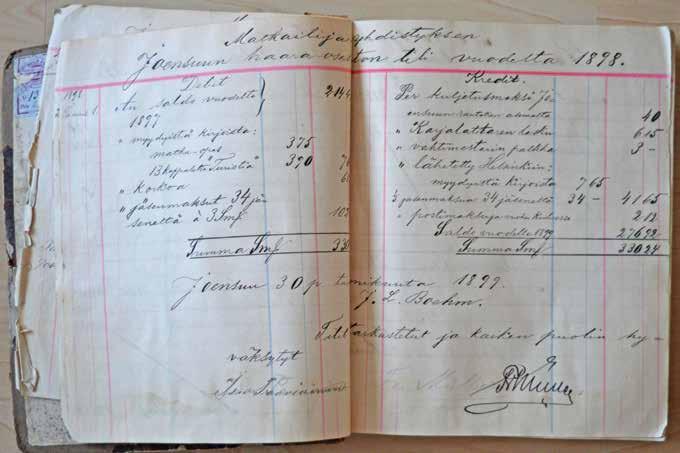 Matkailijayhdistyksen
Joensuun haara-osaston tili vuodelta 1898.
Debet
1898
An saldo vuodelta
1897
2144
" myydyistä kirjoista:
matka-opas 375
13 kappaletta "Turistia" 390
" korkoa
" jäsenmaksut 34 jä-
seneltä à 3 Smf 102
Summa Smf 330
Kredit.
Per kuljetusmaksu Jo-
ensuun rautatien asemalta 40
" Karjalattaren lasku 615
" vahtimestarin palkka 3 -
" lähetetty Helsinkiin:
myydyistä kirjoista 765
½ jäsenmaksua 34 jäseneltä 34 - 4165
" postimaksuja 212
Saldo vuodelle 1899 27692
Summa Smf 33024
Joensuu 30 p. tammikuuta 1899.
J. L. Boehm.
Tilitarkastetut ja kaiken puolin hy-
väksytyt